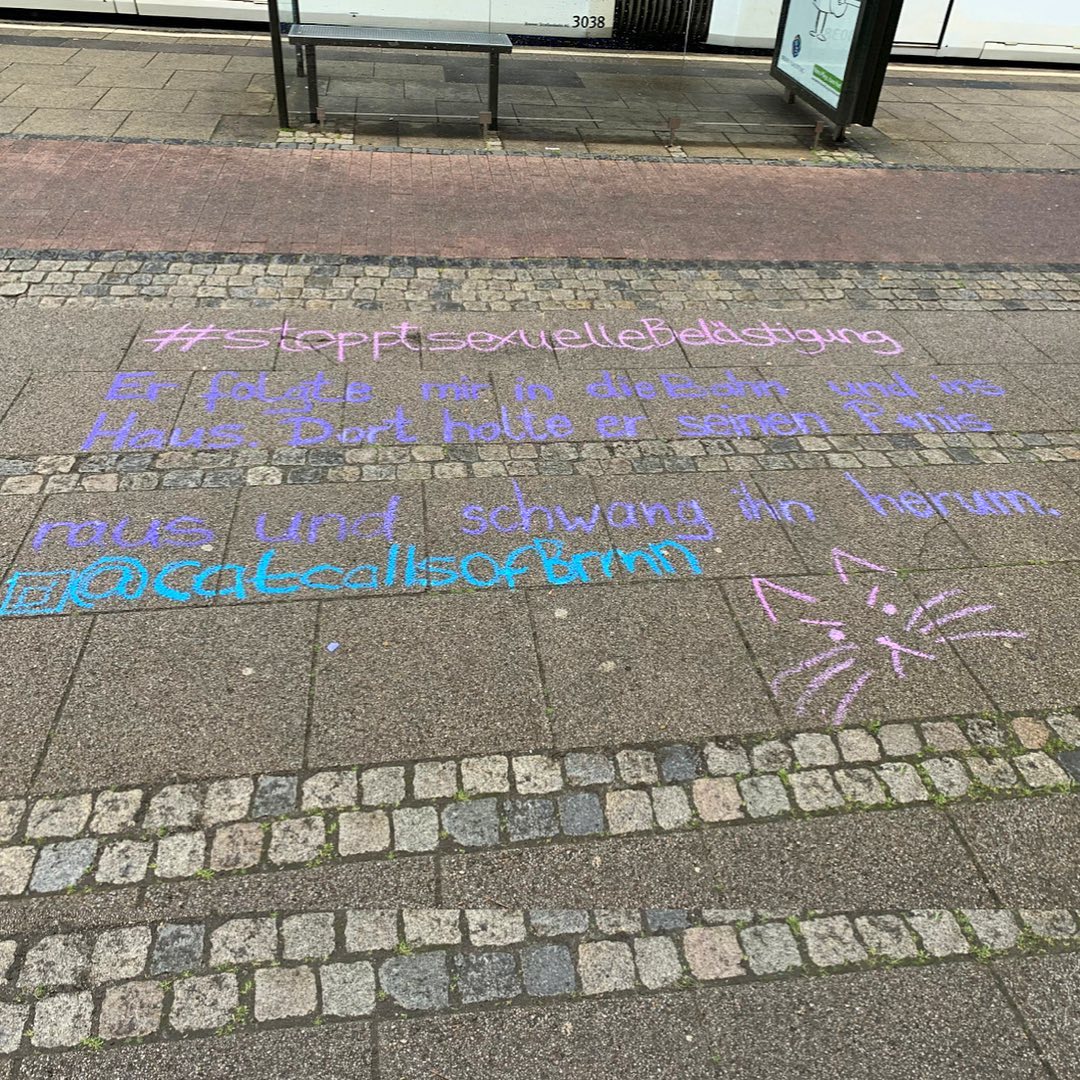 3038
#stopptsexuelleBelästigung
Er folgte mir in die Bahn und ins
Haus. Dort holte er seinen P*nis
raus und schwang ihn herum.
@catcallsofBrmn